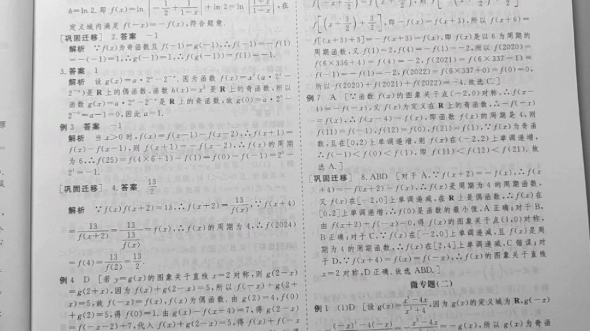 b=ln 2,即 f(x)=ln|-1/2+1/(1-x)|+ln 2=ln|(1+x)/(1-x)|,在
定义域内满足 f(-x)=-f(x),符合题意.
[巩固迁移] 2.答案 -1
解析 ∵f(x)为奇函数且 f(-1)=g(-1),∴f(-1)=-f(1)
=-(-1)=1,∴g(-1)=1,∴f(g(-1))=f(1)=-1.
3.答案 1
解析 设 g(x)=a·2ˣ-2⁻ˣ,因为函数 f(x)=x³(a·2ˣ-
2⁻ˣ)是 R 上的偶函数,函数 h(x)=x³ 是 R 上的奇函数,所以
函数 g(x)=a·2ˣ-2⁻ˣ 是 R 上的奇函数,故 g(0)=a·2⁰-
2⁻⁰=a-1=0,因此 a=1.
例 3 答案 -1
解析 当 x>0 时,f(x)=f(x-1)-f(x-2),∴f(x+1)=
f(x)-f(x-1),则 f(x+1)=-f(x-2),∴f(x)的周期
为 6,∴f(25)=f(4×6+1)=f(1)=f(0)-f(-1)=2⁰-
2¹=-1.
[巩固迁移] 4.答案 13/2
解析 ∵f(x)f(x+2)=13,∴f(x+2)=13/f(x),∵f(x+4)
=13/f(x+2)=13/(13/f(x))=f(x),∴f(x)的周期为 4,∴f(2024)
=f(4)=13/f(2)=13/2.
例 4 D [若 y=g(x)的图象关于直线 x=2 对称,则 g(2-x)
=g(2+x),因为 f(x)+g(2-x)=5,所以 f(-x)+g(2+
x)=5,故 f(-x)=f(x),f(x)为偶函数.由 g(2)=4,f(0)
+g(2)=5,得 f(0)=1.由 g(x)-f(x-4)=7,得 g(2-x)
=f(-x-2)+7,代入 f(x)+g(2-x)=5,得 f(x)+f(-x
,即-f(x)=f(x+3),所以 f(x+6)=
f[(x+3)+3]=-f(x+3)=f(x),即 f(x)是以 6 为周期的
周期函数,又 f(1)=2,f(4)=-f(1)=-2,所以 f(2020)=
f(6×336+4)=f(4)=-2,f(2021)=f(6×337-1)=
f(-1)=-f(1)=-2,f(2022)=f(6×337+0)=f(0)=0,
所以 f(2020)+f(2021)+f(2022)=-4.故选 C.]
例 7 A [∵函数 f(x)的图象关于点(-2,0)对称,∴f(x-
4)=-f(-x),又 f(x)为定义在 R 上的奇函数,∴-f(-x)
=f(x),∴f(x-4)=f(x),即函数 f(x)的周期是 4,则
f(11)=f(-1),f(12)=f(0),f(21)=f(1),∵f(x)为奇函
数,且在[0,2)上单调递增,则 f(x)在(-2,2)上单调递增,
∴f(-1)<f(0)<f(1),即 f(11)<f(12)<f(21).故
选 A.]
[巩固迁移] 8.ABD [对于 A,∵f(x+2)=-f(x),∴f(x
+4)=-f(x+2)=f(x),∴f(x)是周期为 4 的周期函数,
又 f(x)在[-2,0]上单调递减,在 R 上是偶函数,∴f(x)在
[0,2]上单调递增,∴f(0)是函数的最小值,A 正确;对于 B,
由 f(x+2)=-f(-x)=0,得 f(x)的图象关于点(1,0)对称,
B 正确;对于 C,∵f(x)在[-2,0]上单调递减,且 f(x)是周
期为 4 的周期函数,∴f(x)在[2,4]上单调递减,C 错误;对
于 D,∵f(x+4)=f(x)=f(-x),∴f(x)的图象关于直线
x=2 对称,D 正确.故选 ABD.]
微专题(二)
例 1 (1)D [设 g(x)= ,因为 g(x)的定义域为 R,g(-x)
=-g(x),所以 g(x)为奇函